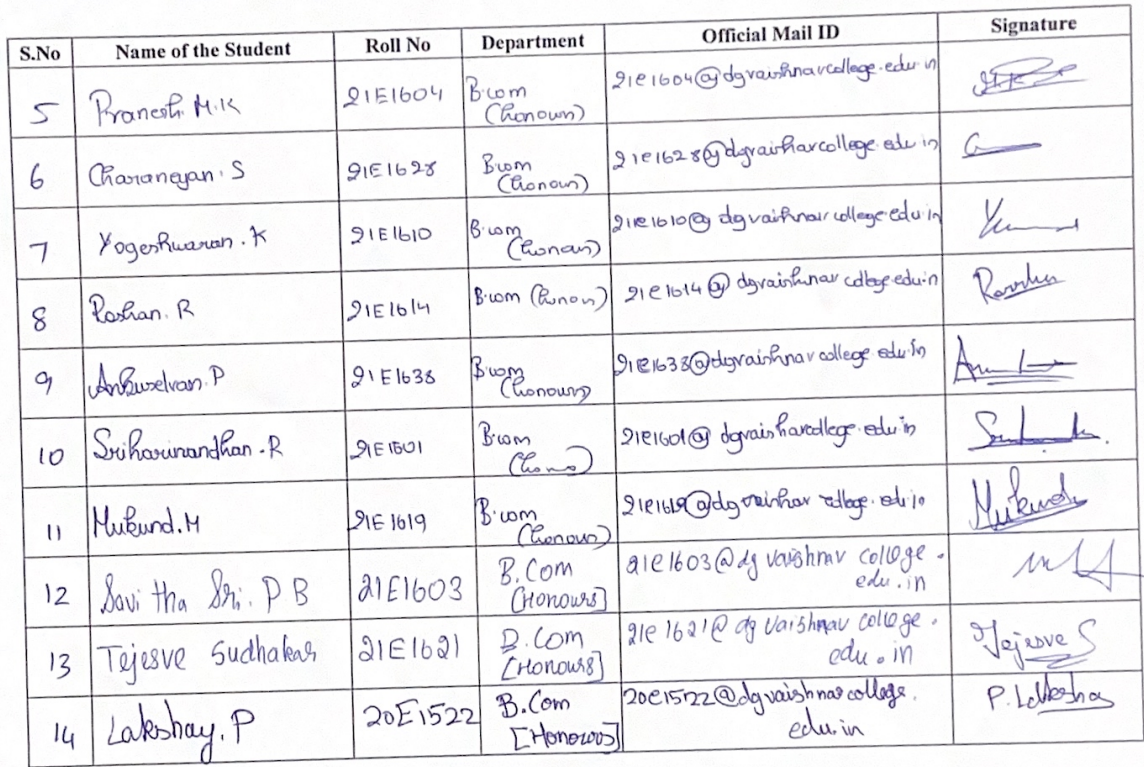 S.No Name of the Student Roll No Department Official Mail ID Signature
5 Pranesh. M.K 21E1604 B.com (honours) 21e1604@dgvaishnavcollege.edu.in
6 Charaneyan. S 21E1628 B.com (honours) 21e1628@dgvaishnavcollege.edu.in
7 Yogeshwaran. K 21E1610 B.com (honours) 21e1610@dgvaishnavcollege.edu.in
8 Roshan. R 21E1614 B.com (honours) 21e1614@dgvaishnavcollege.edu.in
9 Anbuselvan. P 21E1638 B.com (honours) 21e1638@dgvaishnavcollege.edu.in
10 Sriharinandhan. R 21E1601 B.com 21e1601@dgvaishnavcollege.edu.in
11 Mukund. M 21E1619 B.com (honours) 21e1619@dgvaishnavcollege.edu.in Mukund
12 Savitha Sri. P B 21E1603 B.Com [Honours] 21e1603@dgvaishnav college.
edu.in
13 Tejesve Sudhakar 21E1621 B.Com [Honours] 21e1621@dg vaishnav college.
edu.in Tejesve S
14 Lakshay. P 20E1522 B.Com [Honorous] 20e1522@dgvaishnavcollege.
edu.in P. Lakshay